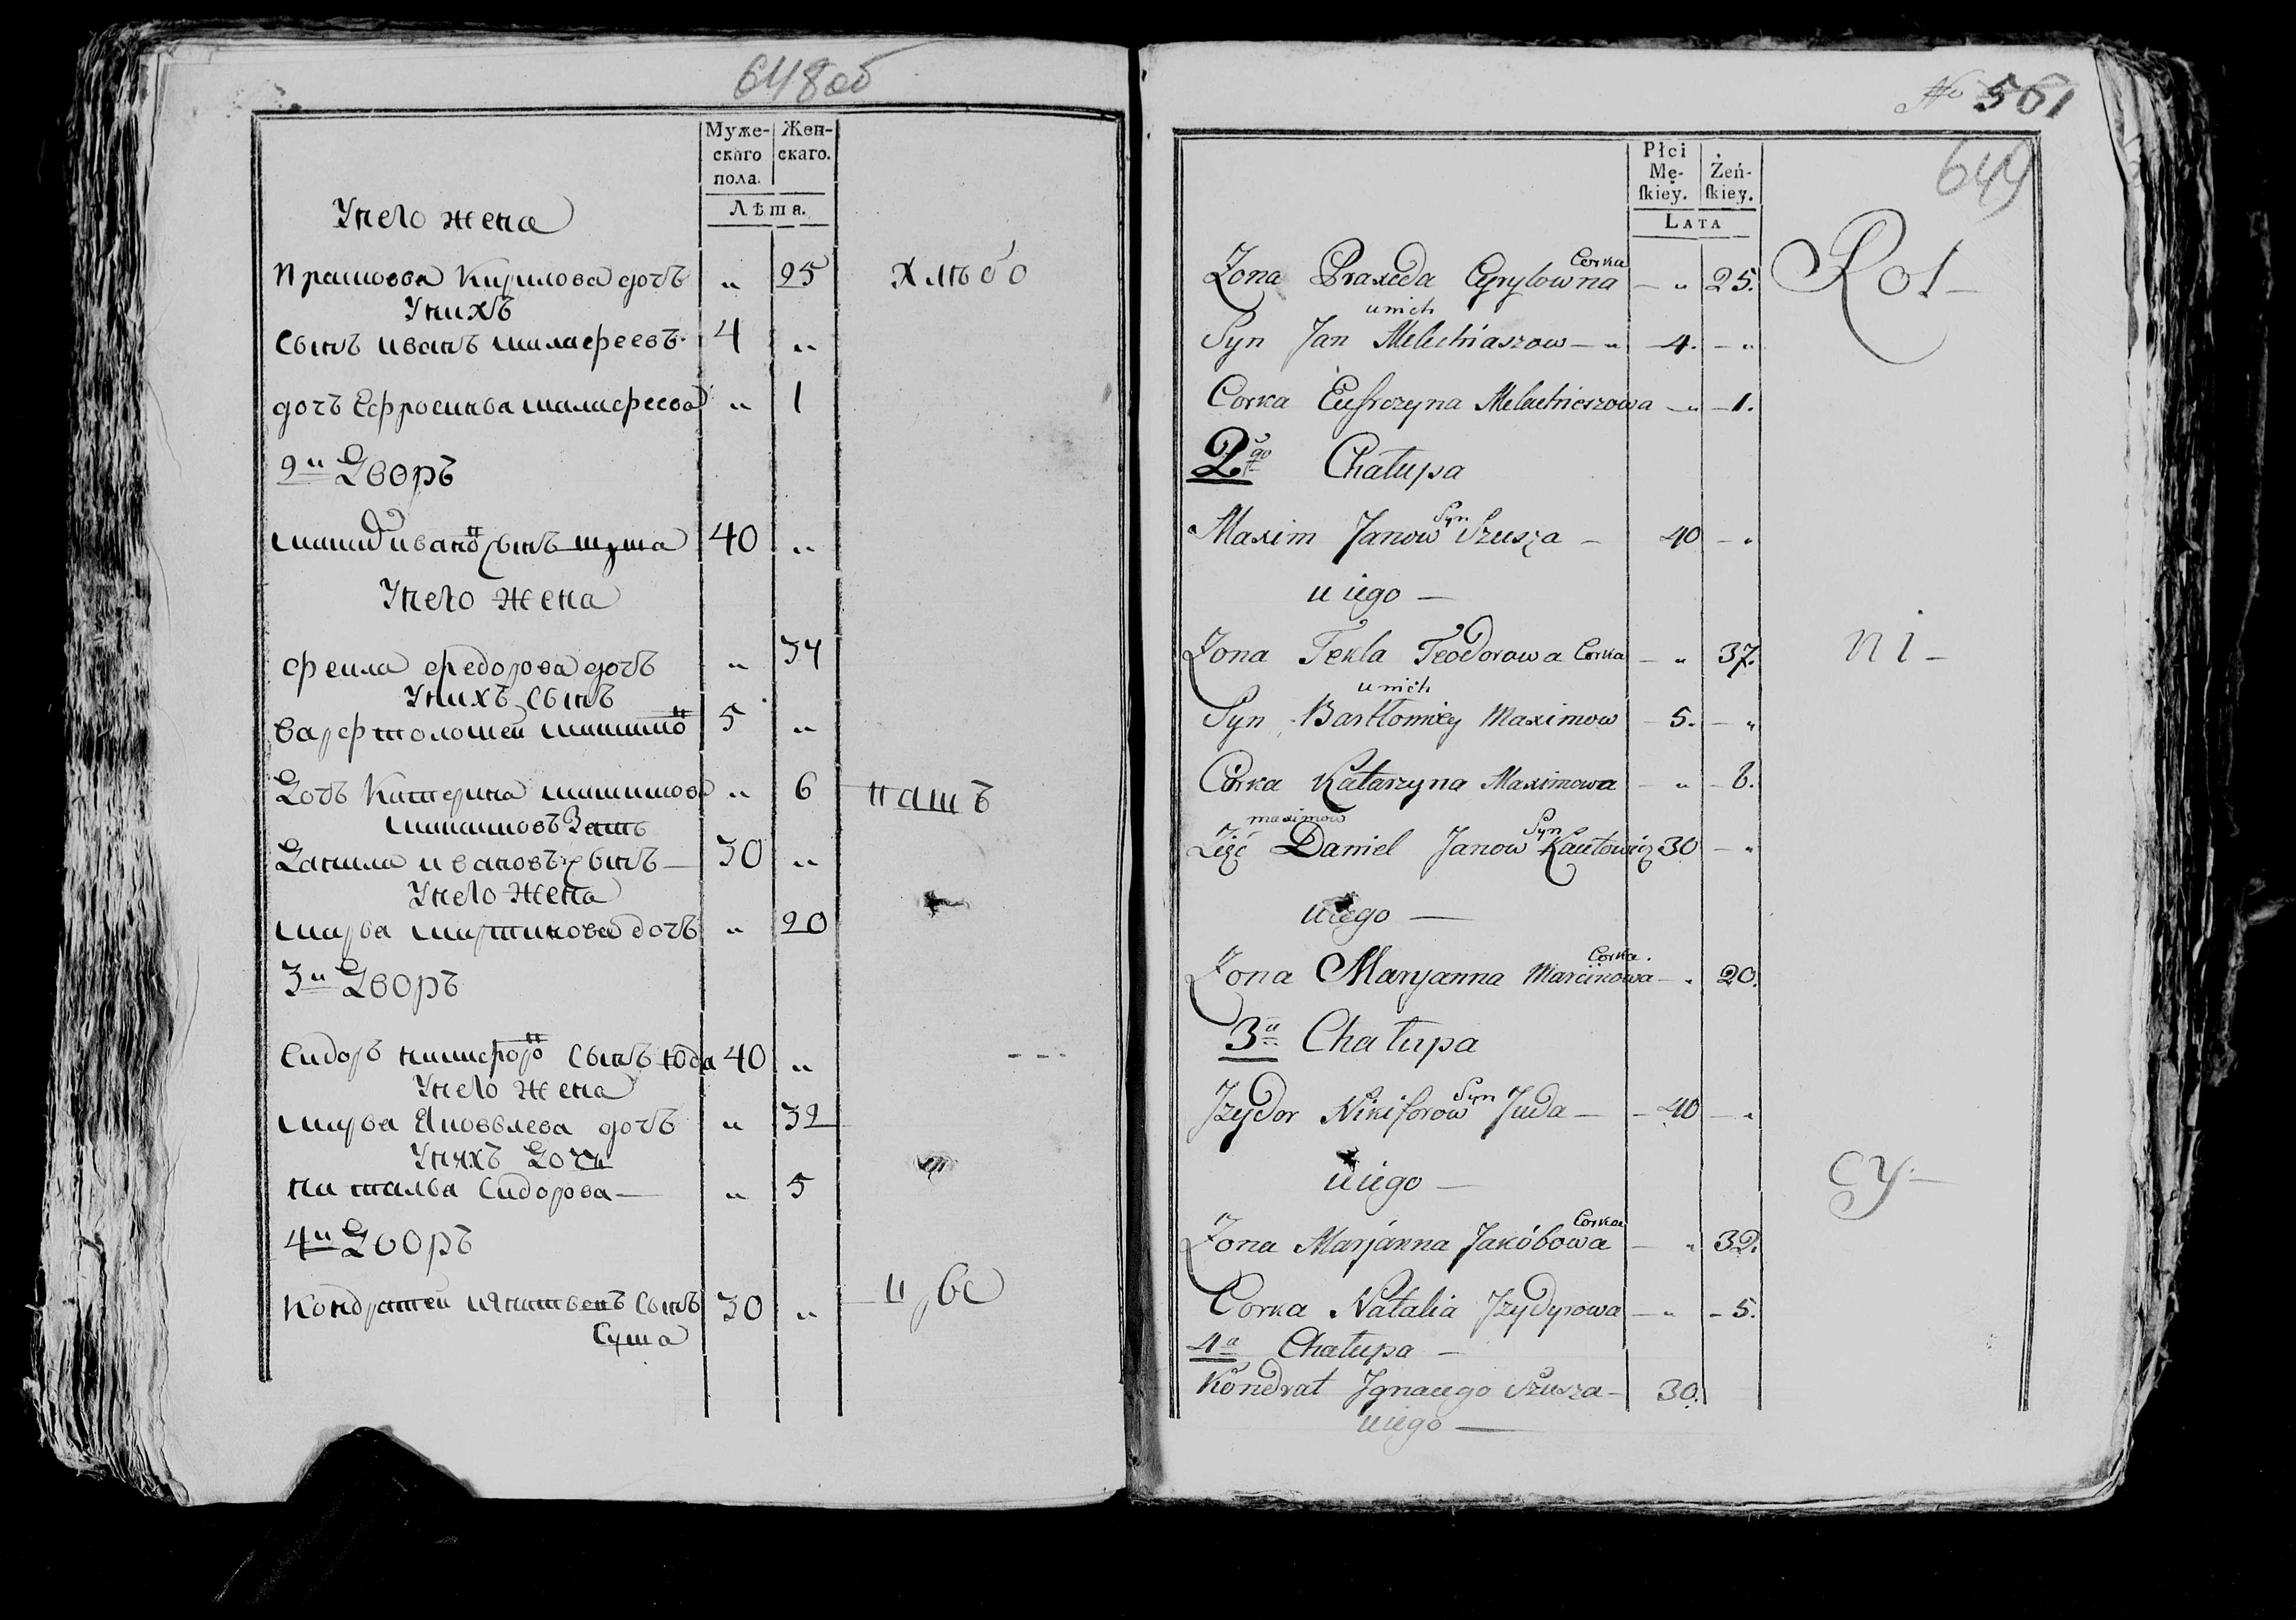 648об
Муже-
скаго
пола.
Жен-
скаго.
Лѣта.
У него жена
Прасковя Кирилова дочь „ 25
Хлѣбо
У нихъ
Сынъ иванъ малафеевъ 4 „
дочь Ефросинья малафеева „ 1
2й Дворъ
максим ивано сынъ шуша 40 „
У него жена
фекла федорова дочь „ 37
У нихъ сынъ
варфоломей максимо 5 „
Дочь Катерина максимова „ 6
пашъ
максимовъ Зять
Данила ивановъ сынъ 30 „
У него жена
марья мартинова дочь „ 20
3й Дворъ
Сидоръ никифоро сынъ юда 40 „
У него жена
марья Яковлева дочь „ 32
У нихъ Дочь
наталья Сидорова „ 5
4й Дворъ
Кондратей игнатьевъ сынъ 30 „
Суша
№ 561
649
Płci
Mę-
ſkiey.
Żeń-
ſkiey.
LATA
Corka
Żona Praxeda Cyrylowna — „ 25.
Rol-
u nich
Syn Jan Melechiaszow — „ 4. — „
Corka Eufrozyna Melechieszowa — „ — 1.
2go Chałupa
Syn
Maxim Janow Szusza — 40 — „
u iego —
Żona Tekla Teodorowa Corka — „ 37.
ni-
u nich
Syn Bartłomiey Maximow — 5. — „
Corka Katarzyna Maximowa — „ — 6.
maximow Syn
Zięć Daniel Janow 30 — „
u iego —
Corka.
Żona Maryanna Marcinowa — „ 20.
3a Chałupa
Syn
Jzydor Nikiforow Juda — 40 — „
u iego —
cy-
Corka
Żona Marjanna Jakóbowa — „ 32.
Corka Natalia Jzydyrowa — „ — 5.
4a Chałupa —
Kondrat Jgnacego Szusza — 30.
u iego —